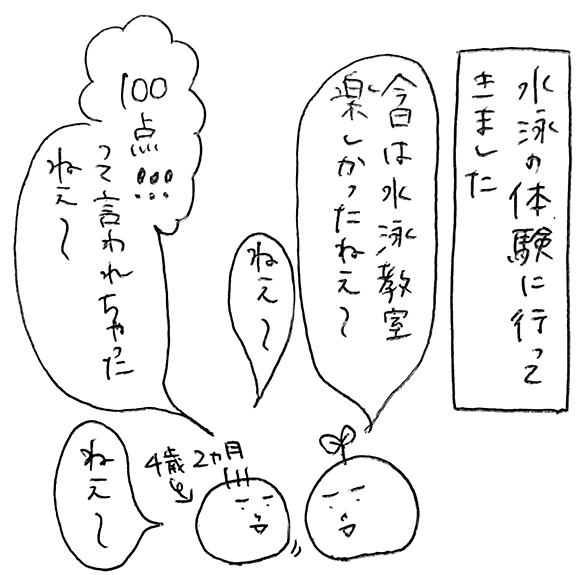 水泳の体験に行って
きました
今日は水泳教室
楽しかったねえ〜
ねえ〜
100
点
!!!
って言われちゃった
ねえ〜
4歳2ヵ月
ねえ〜